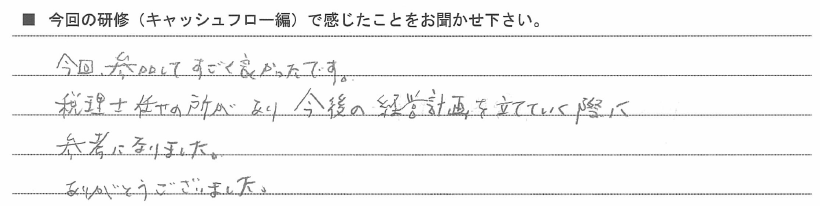 ■ 今回の研修（キャッシュフロー編）で感じたことをお聞かせ下さい。
今回、参加してすごく良かったです。
税理士任せの所があり 今後の経営計画を立てていく際に
参考になりました。
ありがとうございました。